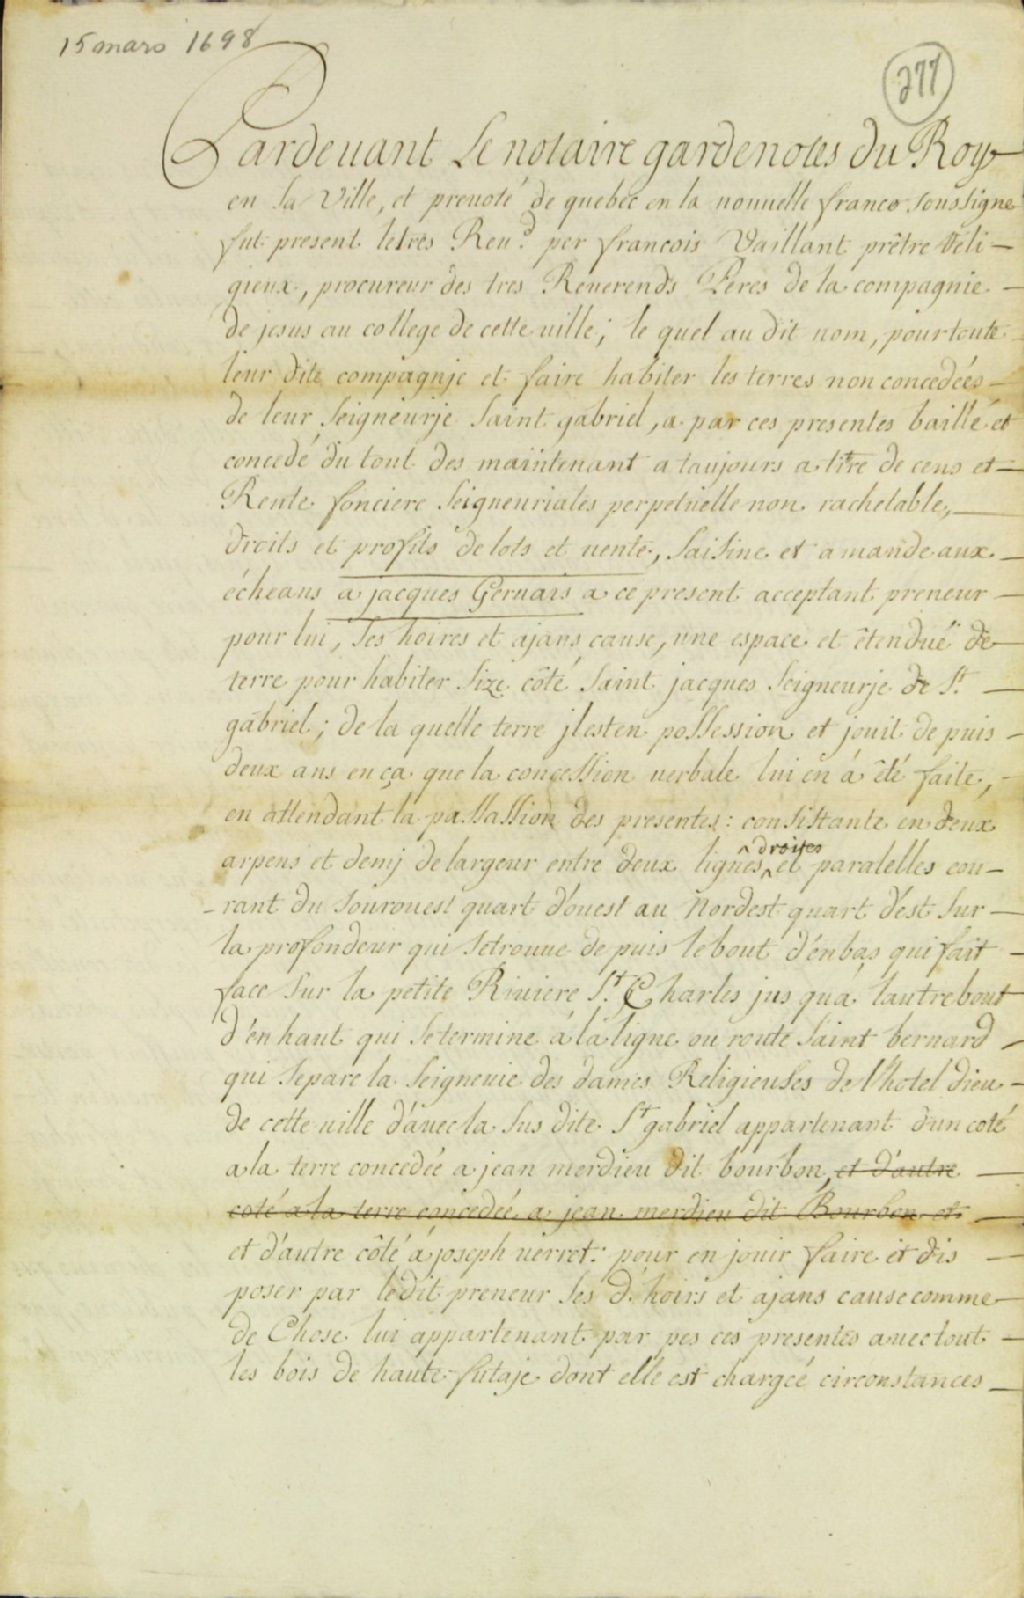 15 mars 1698
277
Pardeuant Le notaire gardenotes du Roy
en sa Ville, et preuoté de quebec en la nouuelle france soussigne
fut present letres Reu.d per francois Vaillant prêtre Réli-
gieux, procureur des tres Reuerends Peres de la compagnie
de jesus au college de cette ville; le quel au dit nom, pour toute
leur dite compagnje et faire habiter les terres non concedées
de leur seigneurje saint gabriel, a par ces presentes baillé et
concedé du tout des maintenant a taujours a titre de cens et
Rente fonciere seigneuriales perpetuelle non rachetable,
droits et profits de lots et uente, saisine et amande aux
écheans a jacques Geruais a ce present acceptant preneur
pour lui, ses hoires et ajans cause, une espace et êtenduë de
terre pour habiter size côté saint jacques seigneurje de St.
gabriel; de la quelle terre jl esten possession et jouit de puis
deux ans en ça que la concession uerbale lui en á êté faite,
en attendant la passassion des presentes: consistante en deux
arpens et demj de largeur entre deux lignes ^droites et paralelles cou-
-rant du sourouest quart d'ouest au Nordest quart d'est sur
la profondeur qui setrouue de puis le bout d'enbas qui fait
face sur la petite Riuiere St. Charles jus qu'a lautre bout
d'en haut qui se termine á la ligne ou route saint bernard
qui separe la seigneuie des dames Religieuses de l'hotel dieu
de cette uille d'auec la sus dite St gabriel appartenant d'un coté
a la terre concedée a jean merdieu dit bourbon, et d'autre
coté a la terre concedée a jean merdieu dit Bourbon et
et d'autre côté á joseph uerret: pour en jouir faire et dis
poser par ledit preneur ses d. hoirs et ajans cause comme
de Chose lui appartenant par pes ces presentes auec tout
les bois de haute futaje dont elle est chargeé circonstances